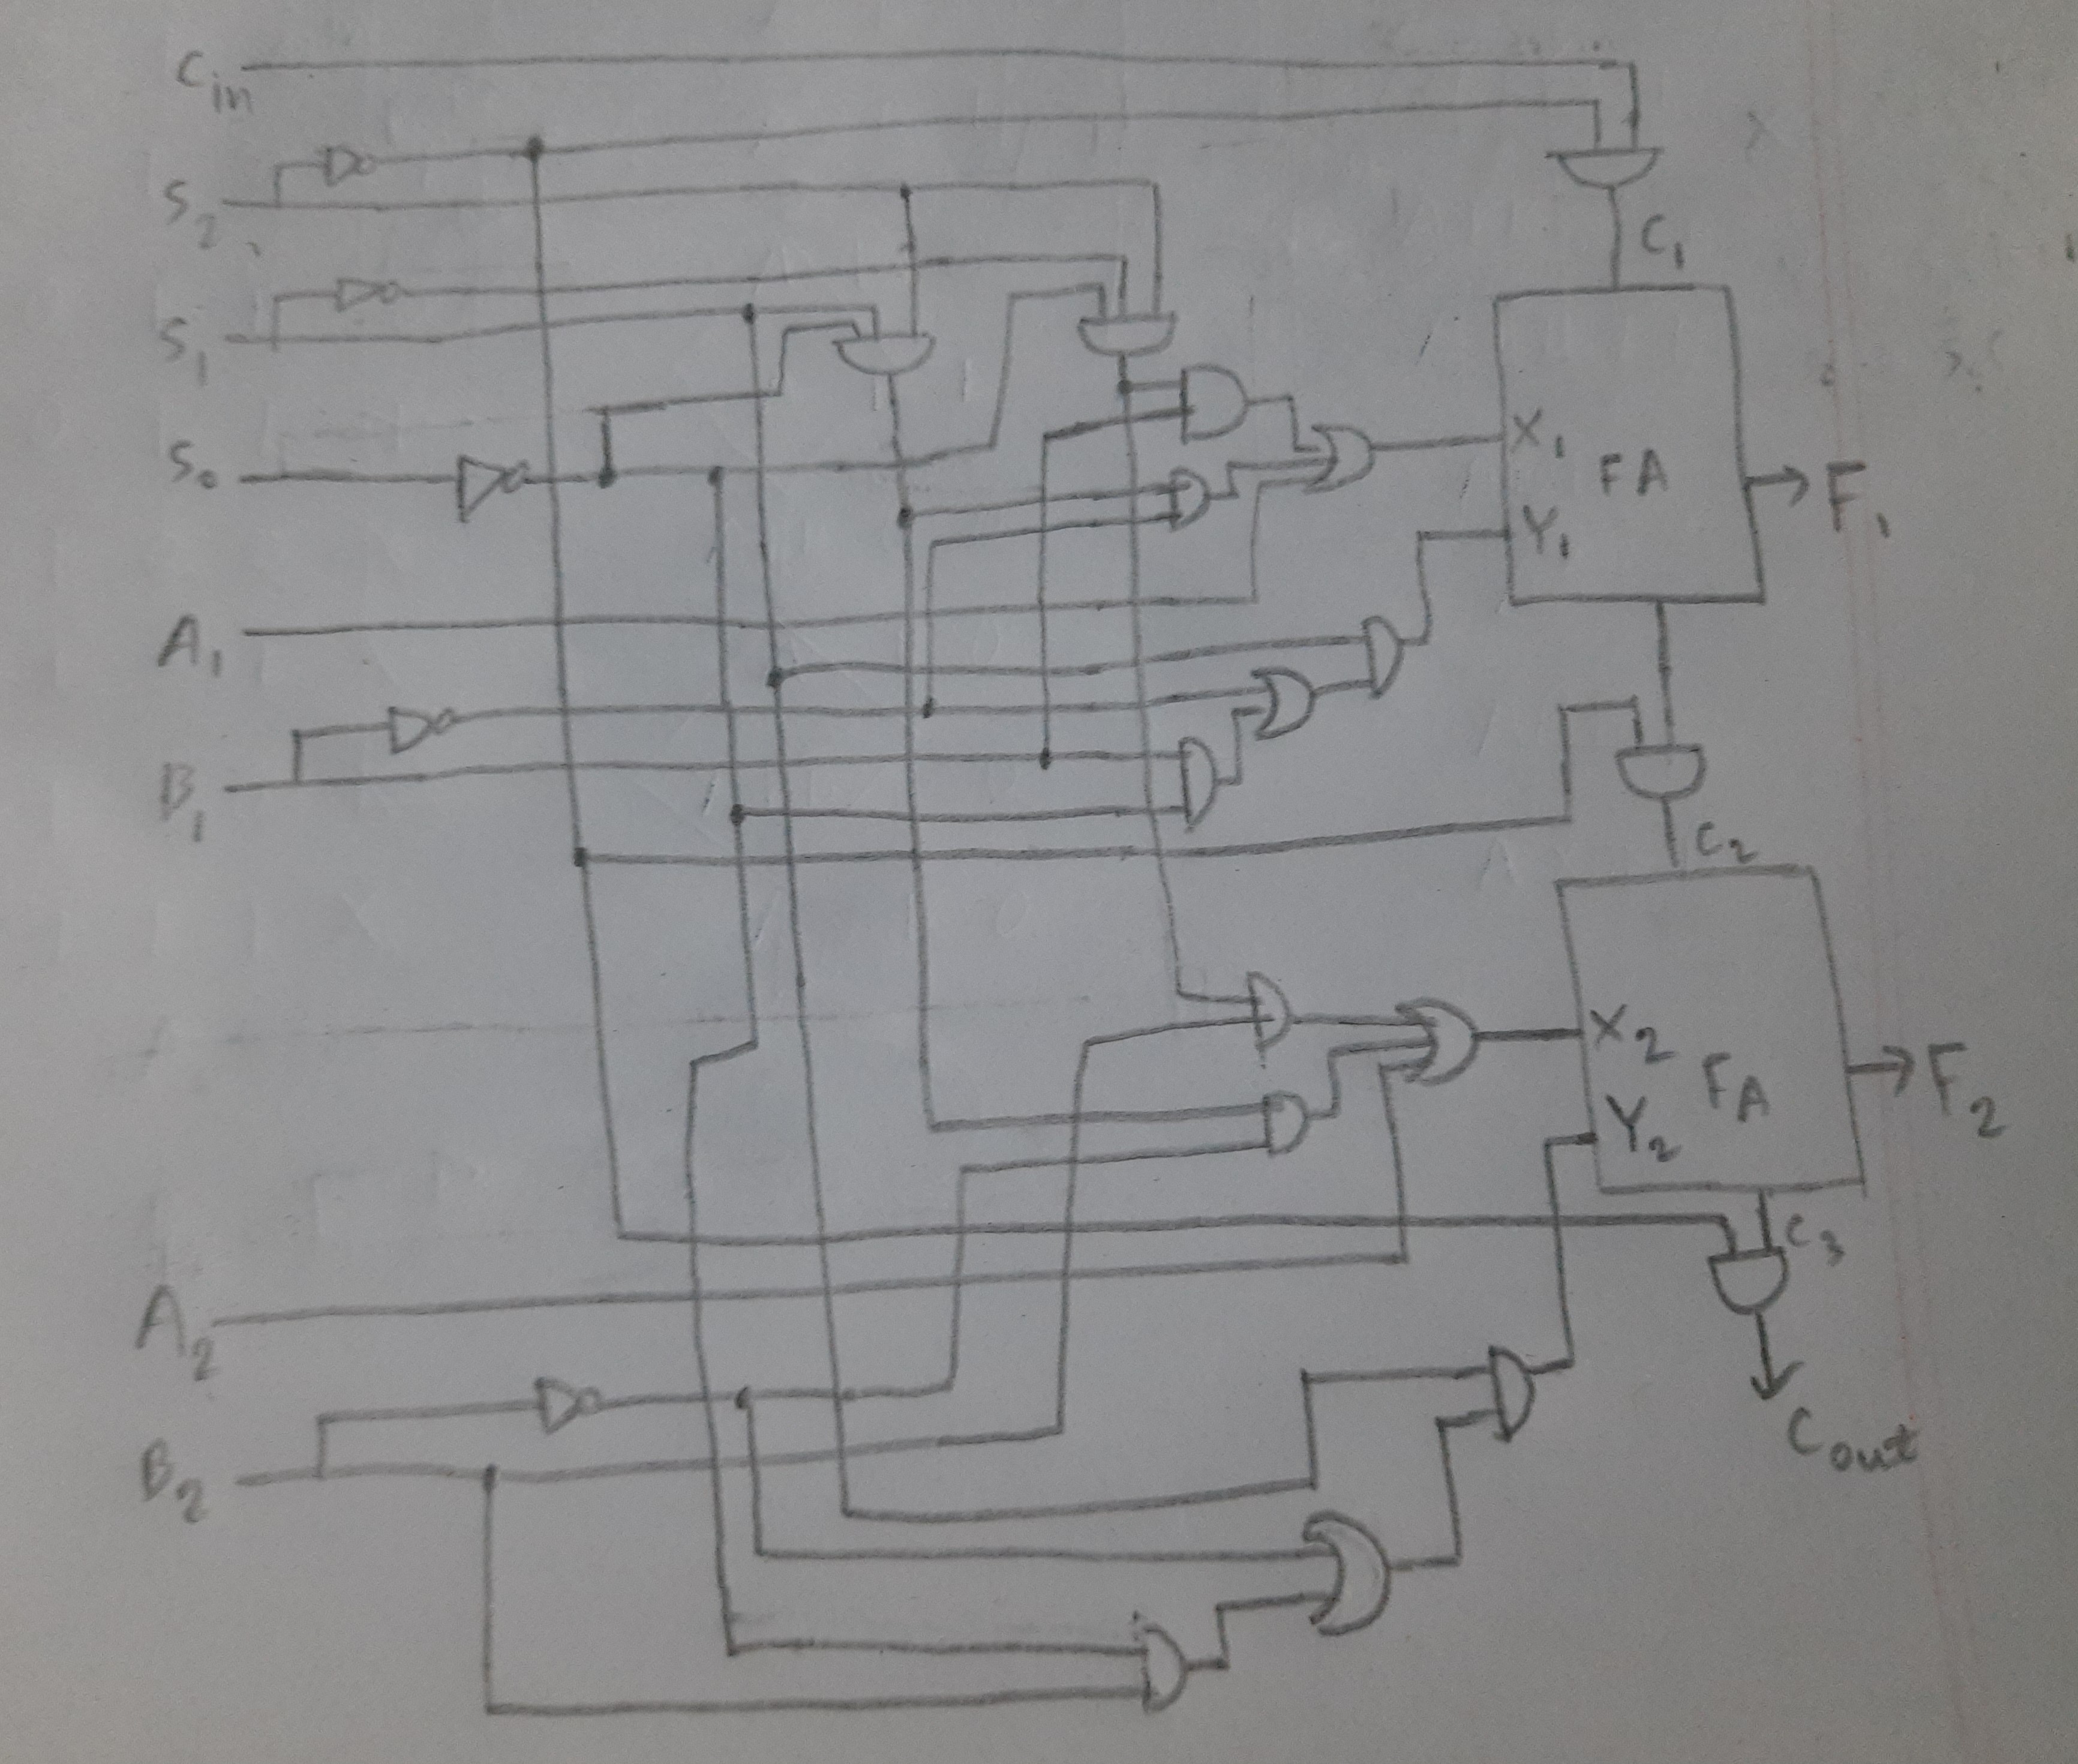 Cin
S2
S1
S0
A1
B1
C1
X1
FA
Y1
F1
C2
X2
FA
Y2
F2
C3
A2
B2
Cout